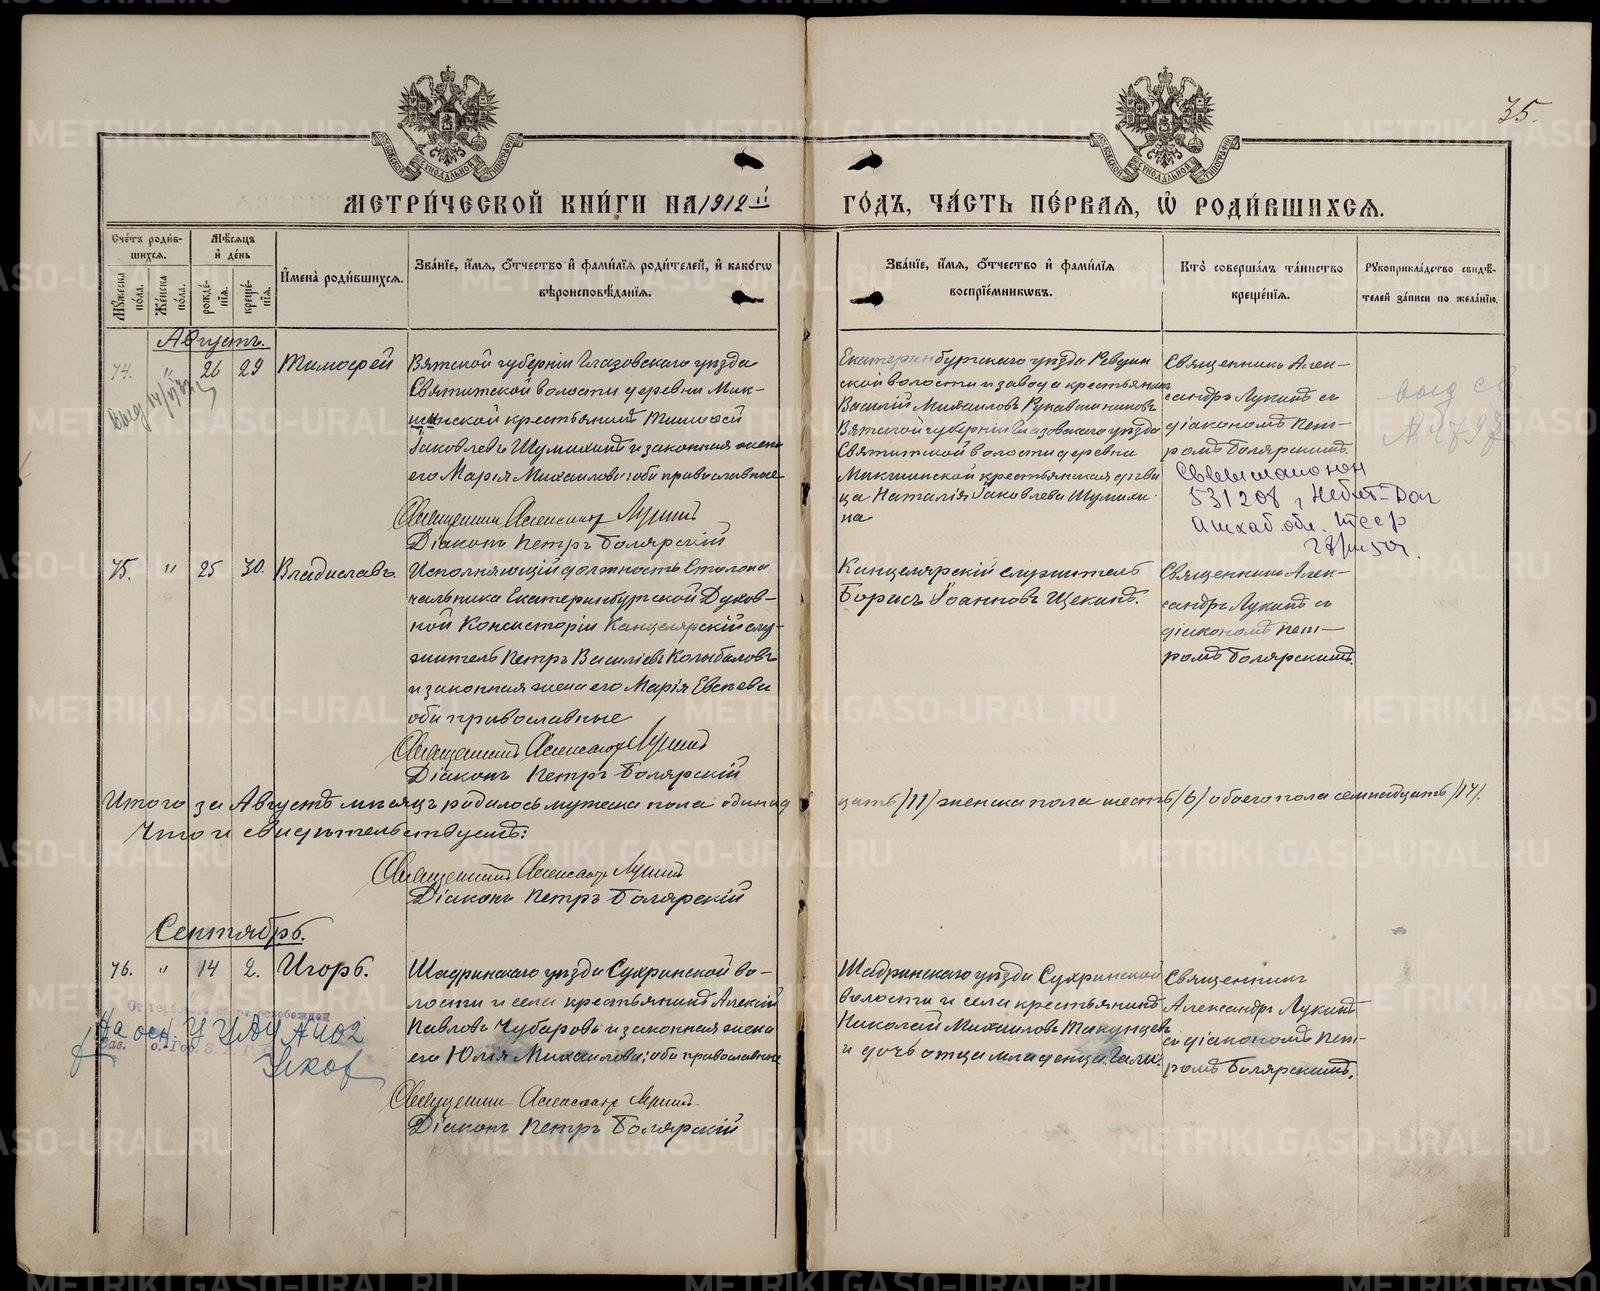 35.
МЕТРИ́ЧЕСКОЙ КНИ́ГИ НА 1912 й
ГО́ДЪ, ЧА́СТЬ ПЕ́РВАЯ, Ѡ҆ РОДИ́ВШИХСЯ.
Сче́тъ роди́в-
шихся.
Мꙋ́жеска по́ла.
Же́нска по́ла.
Мѣ́сяцъ
и҆ де́нь
рожде́-
нїя.
креще́-
нїя.
И҆мена̀ роди́вшихся.
Зва́нїе, и҆́мя, ѻ҆́тчество и҆ фами́лїя роди́телей, и҆ како́гѡ
вѣроисповѣ́данїя.
Зва́нїе, и҆́мя, ѻ҆́тчество и҆ фами́лїя
воспрїе́мникѡвъ.
Кто̀ соверша́лъ та́инство
креще́нїя.
Рꙋкоприкла́дство свидѣ́-
телей за́писи по жела́нїю.
Августъ.
74. " 26 29 Тимофей
Вятской губерніи Глазовскаго уѣзда
Святитской волости деревни Мик-
шинской крестьянинъ Тимофей
Іаковлевъ Шумихинъ и законная жена
его Марія Михаилова; оба православные
Священникъ Александръ Лукинъ
Діаконъ Петръ Болярскій
Екатеринбургскаго уѣзда Ревдин
ской волости и завода крестьянинъ
Василій Михаиловъ Рукавишниковъ
Вятской губерніи Глазовскаго уѣзда
Святитской волости деревни
Микшинской крестьянская дѣви
ца Наталія Іаковлева Шумихи-
на
Священникъ Алек-
сандръ Лукинъ съ
діакономъ Пет-
ромъ Болярскимъ.
531208, Небит-Даг
Ашхаб. обл. ТССР
75. " 25 30. Владиславъ.
Исполняющій должность Столона
чальника Екатеринбургской Духов-
ной Консисторіи Канцелярскій слу-
житель Петръ Василіевъ Колыбаловъ
и законная жена его Марія Евсеева
оба православные
Священникъ Александръ Лукинъ
Діаконъ Петръ Болярскій
Канцелярскій служитель
Борисъ Іоанновъ Щекинъ.
Священникъ Алек-
сандръ Лукинъ съ
діакономъ Пет-
ромъ Болярскимъ.
Итого за Августъ мѣсяцъ родилось мужеска пола одинад
цать /11/ женска пола шесть /6/ обоего пола семнадцать /17/.
Что и свидѣтельствуемъ:
Священникъ Александръ Лукинъ
Діаконъ Петръ Болярскій
Сентябрь.
76. " 14 2. Игорь.
Шадринскаго уѣзда Сухринской во-
лости и села крестьянинъ Алексій
Павловъ Чубаровъ и законная жена
его Юлія Михаилова; оба православные
Священникъ Александръ Лукинъ
Діаконъ Петръ Болярскій
Шадринскаго уѣзда Сухринской
волости и села крестьянинъ
Николай Михаиловъ Такунцевъ
и дочь отца младенца Гали.
Священникъ
Александръ Лукинъ
съ діакономъ Пет-
ромъ Болярскимъ.
METRIKI.GASO-URAL.RU